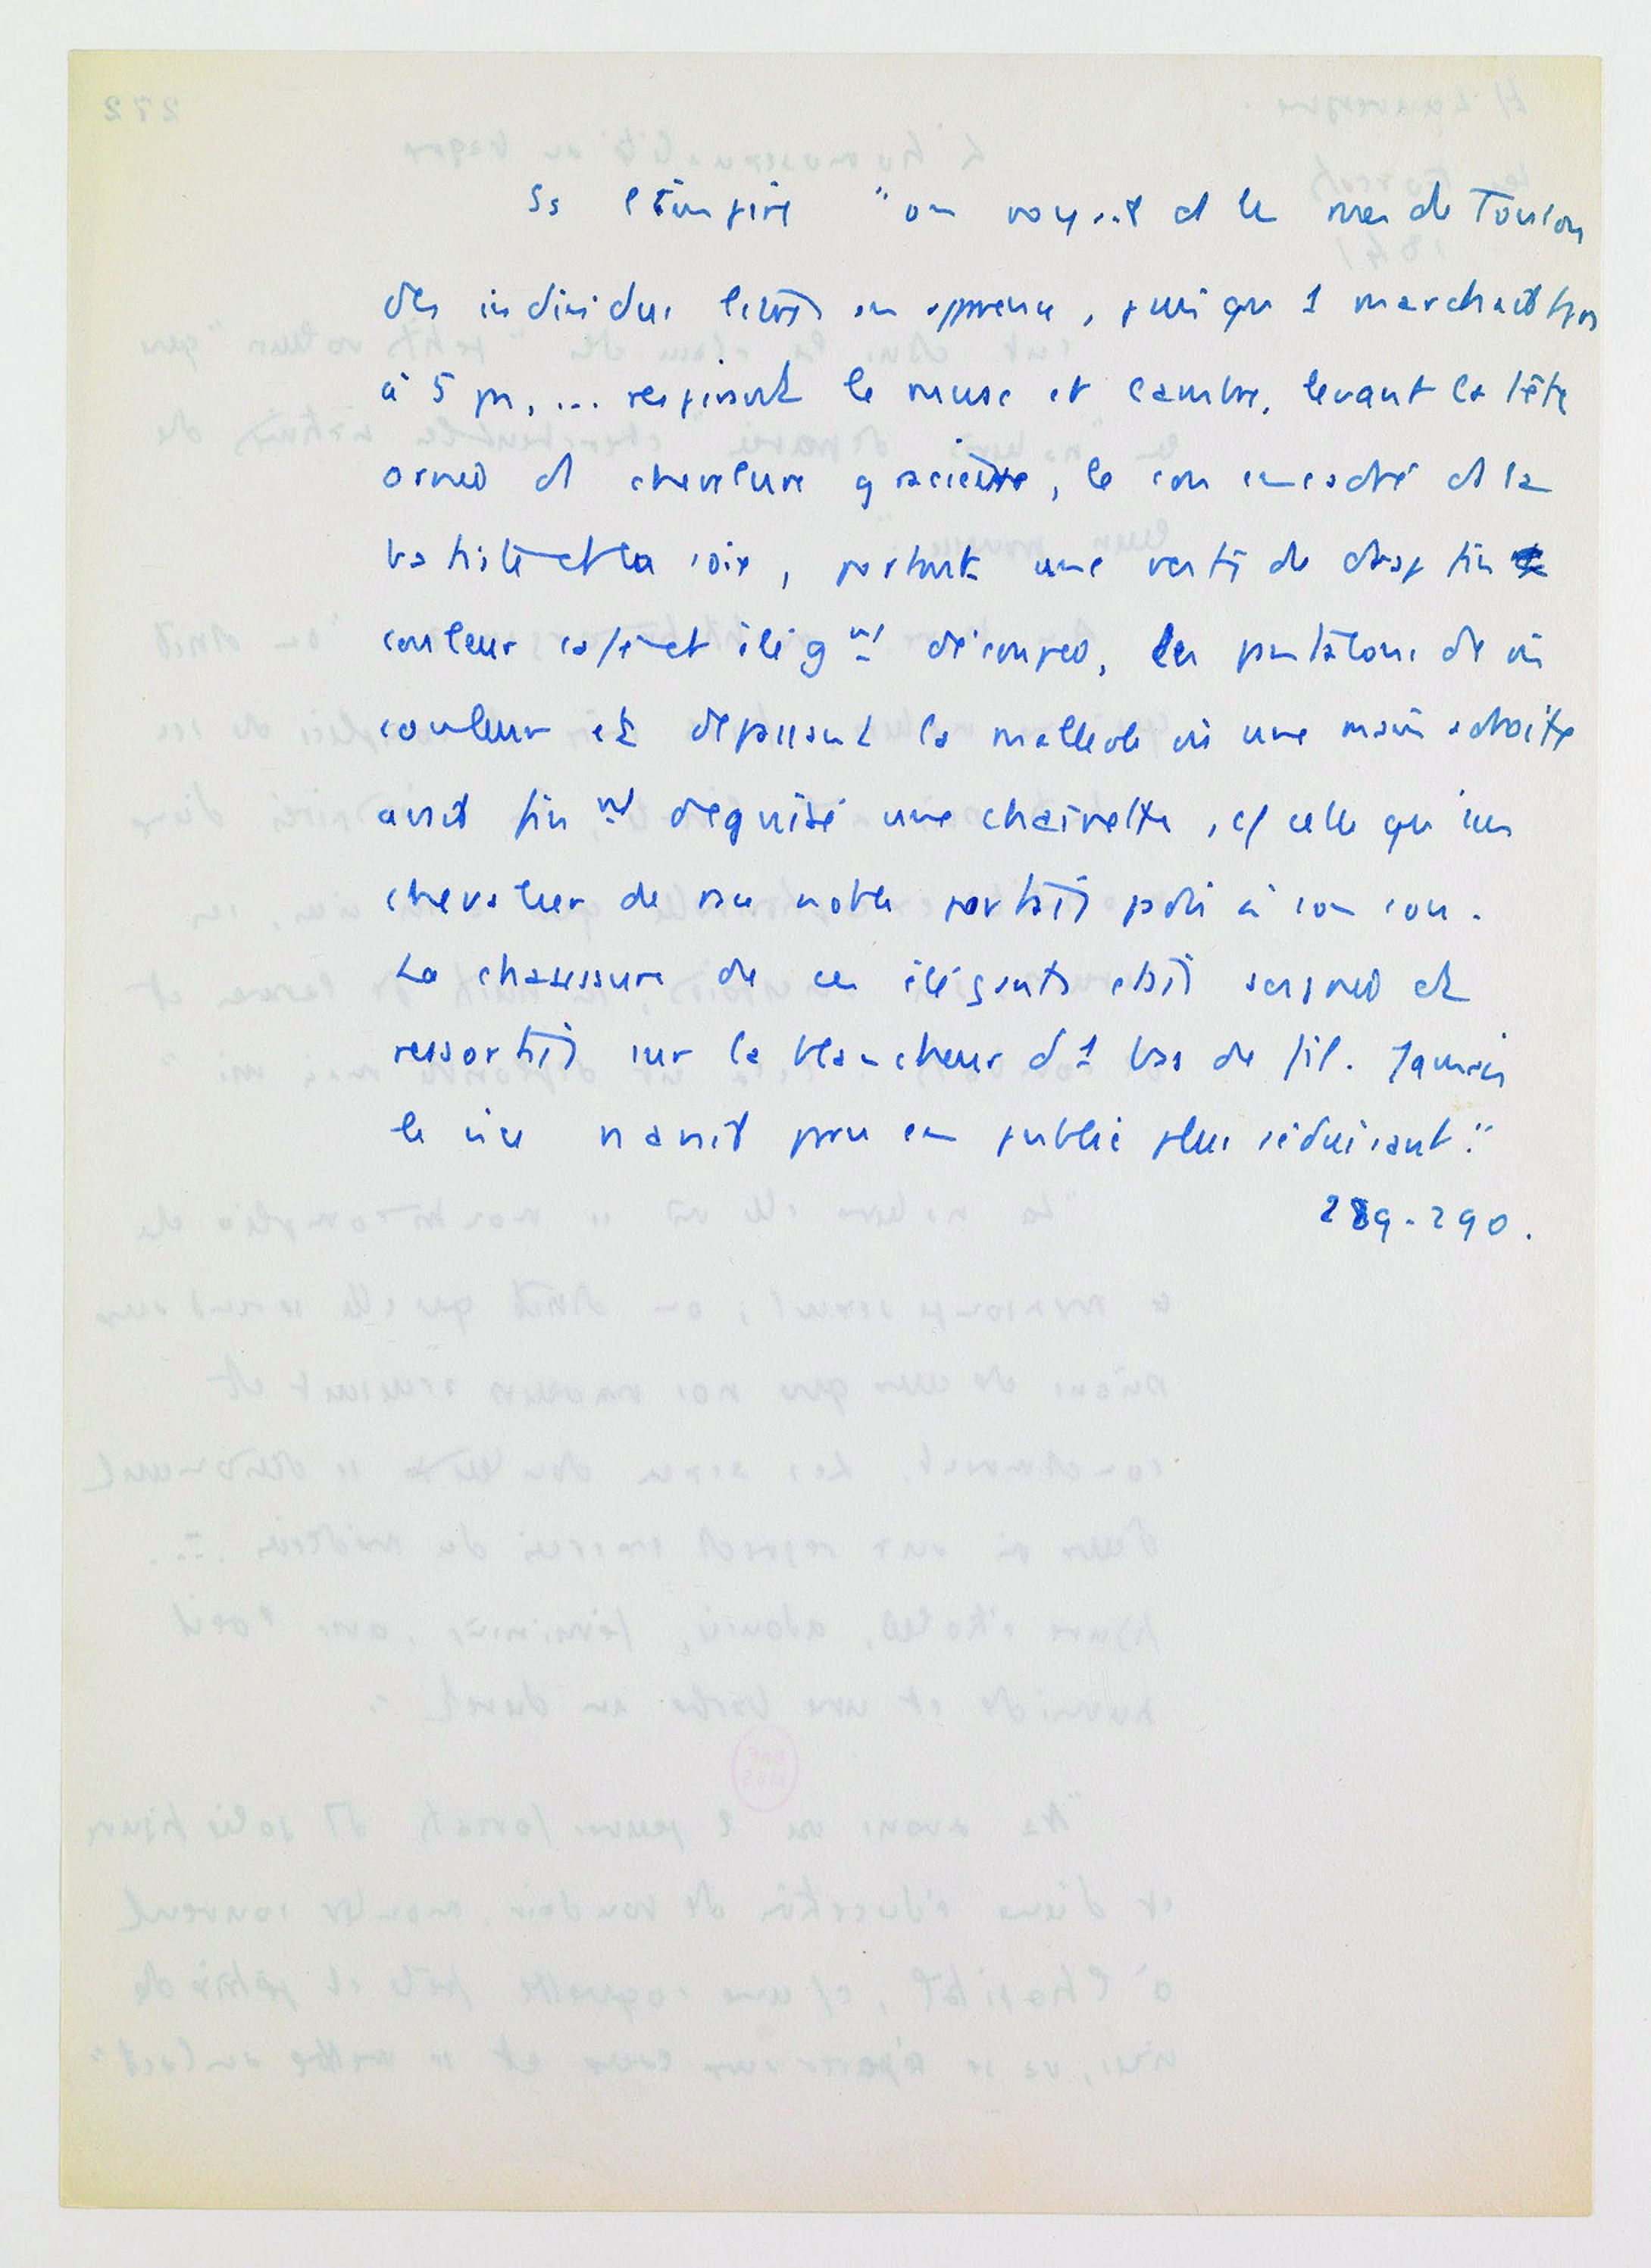 Ss l'Empire "on voyait ds les rues de Toulon
des individus libres en apparence, puisqu'1 marchait trois
à 5 pas, ... respirant le musc et l'ambre, levant la tête
ornée d' chevelure gracieuse, le cou encadré ds la
batiste et la soie, portant une veste de drap fin
couleur café et élégnt découpée, les pantalons de
couleur et dépassant la malléole où une main adroite
avait finnt déguisé une chaînette, cf celle qu'un
chevalier de race noble portait jadis à son cou.
La chaussure de ces élégants était soignée et
ressortait sur la blancheur d'1 bas de fil. Jamais
le vice n'avait paru en public plus séduisant".
289-290.